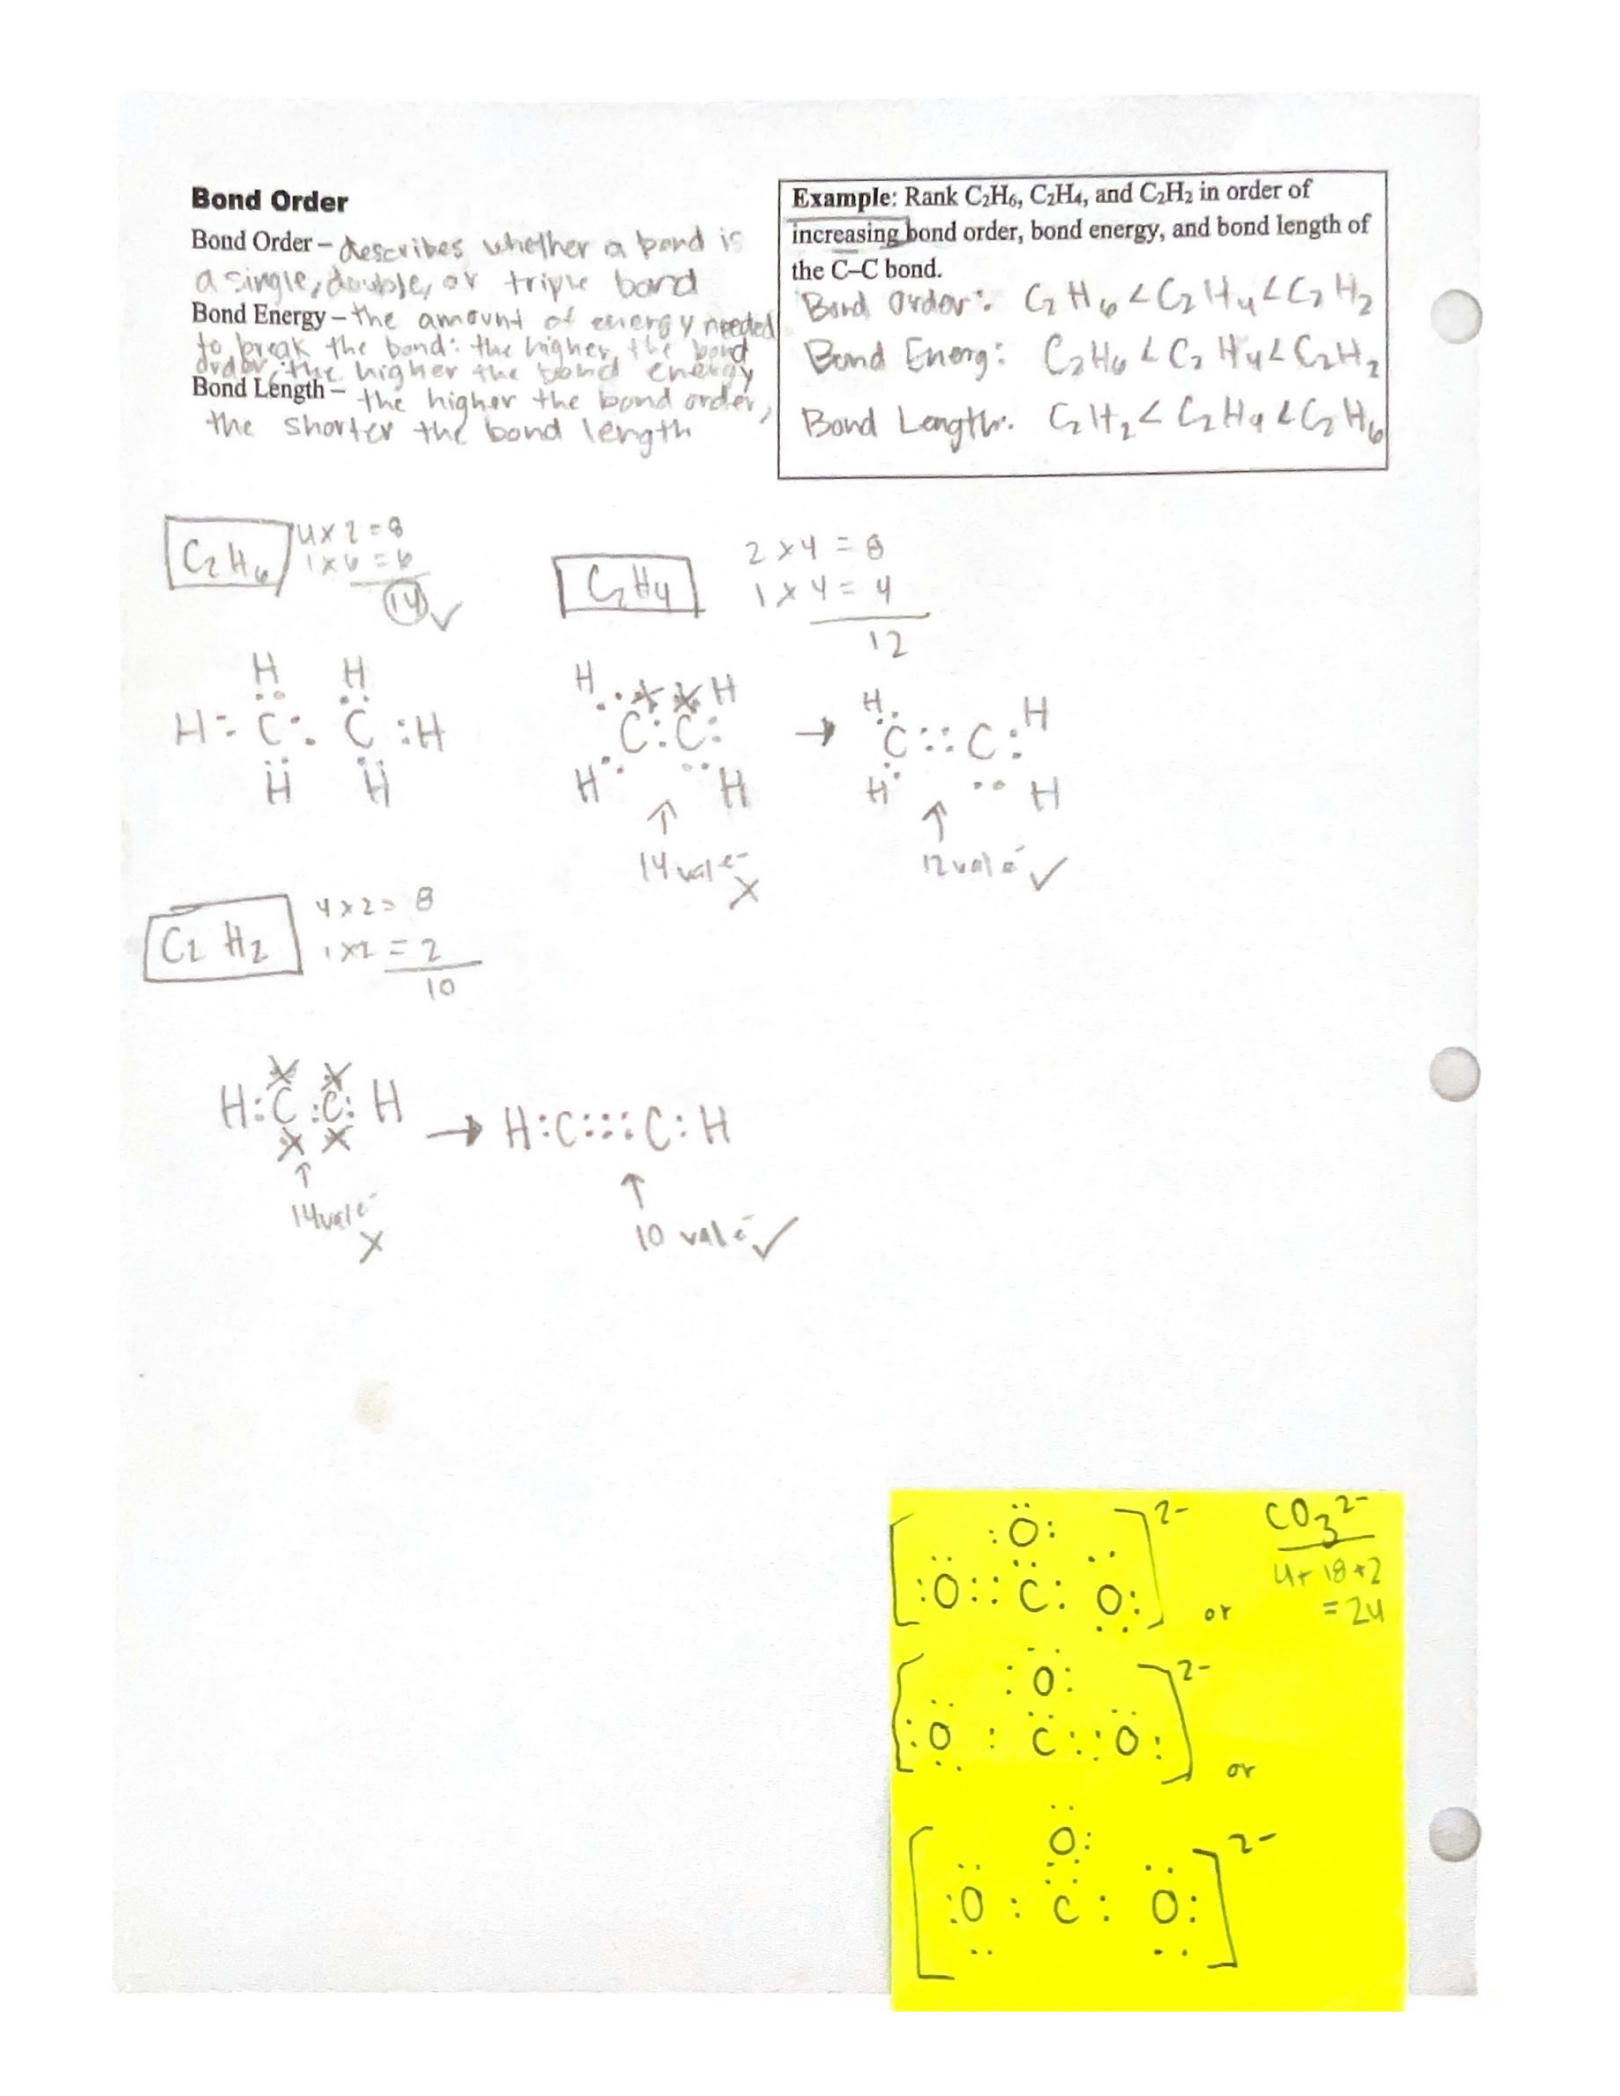 Bond Order
Bond Order – describes whether a bond is
a single, double, or triple bond
Bond Energy – the amount of energy needed
to break the bond: the higher the bond
order, the higher the bond energy
Bond Length – the higher the bond order,
the shorter the bond length
Example: Rank C₂H₆, C₂H₄, and C₂H₂ in order of
increasing bond order, bond energy, and bond length of
the C–C bond.
Bond Order: C₂H₆ < C₂H₄ < C₂H₂
Bond Energ: C₂H₆ < C₂H₄ < C₂H₂
Bond Length: C₂H₂ < C₂H₄ < C₂H₆
C₂H₆
4 x 2 = 8
1 x 6 = 6
14 ✓
H H
H : C : C : H
H H
C₂H₄
2 x 4 = 8
1 x 4 = 4
12
H H
C : C :
H H
↑
14 val e⁻
X
→
H H
C :: C :
H H
↑
12 val e⁻ ✓
C₂ H₂
4 x 2 = 8
1 x 2 = 2
10
H : C : C : H → H : C ::: C : H
↑
14 val e⁻
X
↑
10 val e⁻ ✓
CO₃²⁻
4 + 18 + 2
= 24
[ :O: 2-
:O :: C : O: ] or
[ :O: 2-
:O : C :: O: ] or
[ O: 2-
:O : C : O: ]